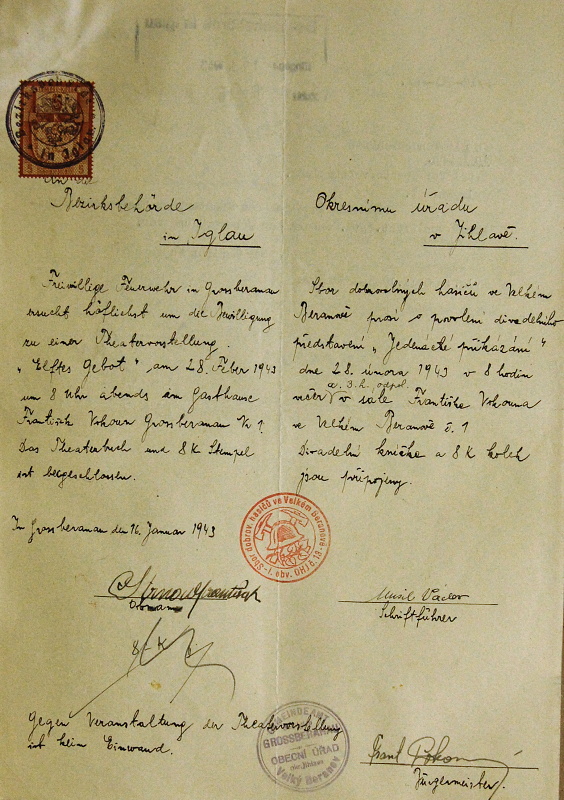 Bezirksbehörde
in Iglau
An die
Bezirksbehörde
in Iglau
Freiwillige Feuerwehr in Grossberanau
ersucht höflichst um die Bewilligung
zu einer Theatervorstellung.
„Elftes Gebot", am 28. Feber 1943
um 8 Uhr abends im Gasthause
František Vokoun Grossberanau Nr 1.
Das Theaterbuch und 8 K Stempel
ist beigeschlossen.
In Grossberanau den 16. Januar 1943
Obmann
8 K
Okresnímu úřadu
v Jihlavě.
Sbor dobrovolných hasičů ve Velkém
Beranově prosí o povolení divadelního
představení „Jedenácté přikázání"
dne 28. února 1943 v 8 hodin
a. 3. h. odpol.
večer v sále Františka Vokouna
ve Velkém Beranově č. 1
Divadelní knížka a 8 K kolek
jsou připojeny.
Sbor dobrov. hasičů ve Velkém Beranově
Musil Václav
Schriftführer
Gegen Veranstaltung der Theatervorstellung
ist kein Einwand.
GEMEINDEAMT
GROSSBERANAU
OBECNÍ ÚŘAD
Velký Beranov
Bürgermeister.